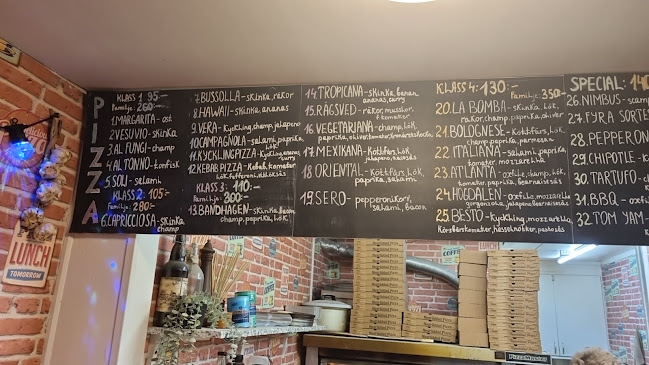 PIZZA
KLASS 1 95:-
Familje: 260:-
1.MARGARITA - ost
2.VESUVIO - skinka
3.AL FUNGI - champ
4.AL TONNO - tonfisk
5.SOLI - salami
KLASS 2: 105
Familje: 280:-
6.CAPRICCIOSA - skinka
champ
7.BUSSOLLA - skinka, räkor
8.HAWAII - skinka, ananas
9.VERA - kyckling, champ, jalapeno
10.CAMPAGNOLA - salami, paprika,
champ, lök
11.KYCKLINGPIZZA - kyckling, ananas
curry
12.KEBAB PIZZA - kebab, tomater
lök, fefferoni, vitlökssås
KLASS 3: 110:-
Familje: 300:-
13.BANDHAGEN - skinka, bacon
champ, paprika, lök
14.TROPICANA - skinka, banan
ananas, curry
15.RÅGSVED - räkor, musslor
tomater
16.VEGETARIANA - champ, lök
paprika, oliver, tomater
17.MEXIKANA - köttfärs, lök
jalapeno, sås
18.ORIENTAL - köttfärs, lök
paprika, salami
19.SERO - pepperonikorv,
salami, bacon
KLASS 4: 130:-
Familje: 350:-
20.LA BOMBA - skinka, lök
räkor, champ, paprika, oliver
21.BOLOGNESE - köttfärs, lök
champ, paprika, parmesan
22.ITALIANA - salami, paprika
tomater, mozzarella
23.ATLANTA - oxfile, champ, lök
tomater, paprika, bearnaisesås
24.HÖGDALEN - oxfile, mozzarella
gorgonzola, jalapeno, bearnaisesås
25.BESTO - kyckling, mozzarella,
körsbärstomater, hasselnötter, pestosås
SPECIAL: 140
26 NIMBUS -
27.FYRA
28.PEPPERON
29.CHIPOTLE -
30.TARTUFO -
31.BBQ -
32 TOM YAM -
LUNCH
TOMORROW
COFFEE
PizzaMaster